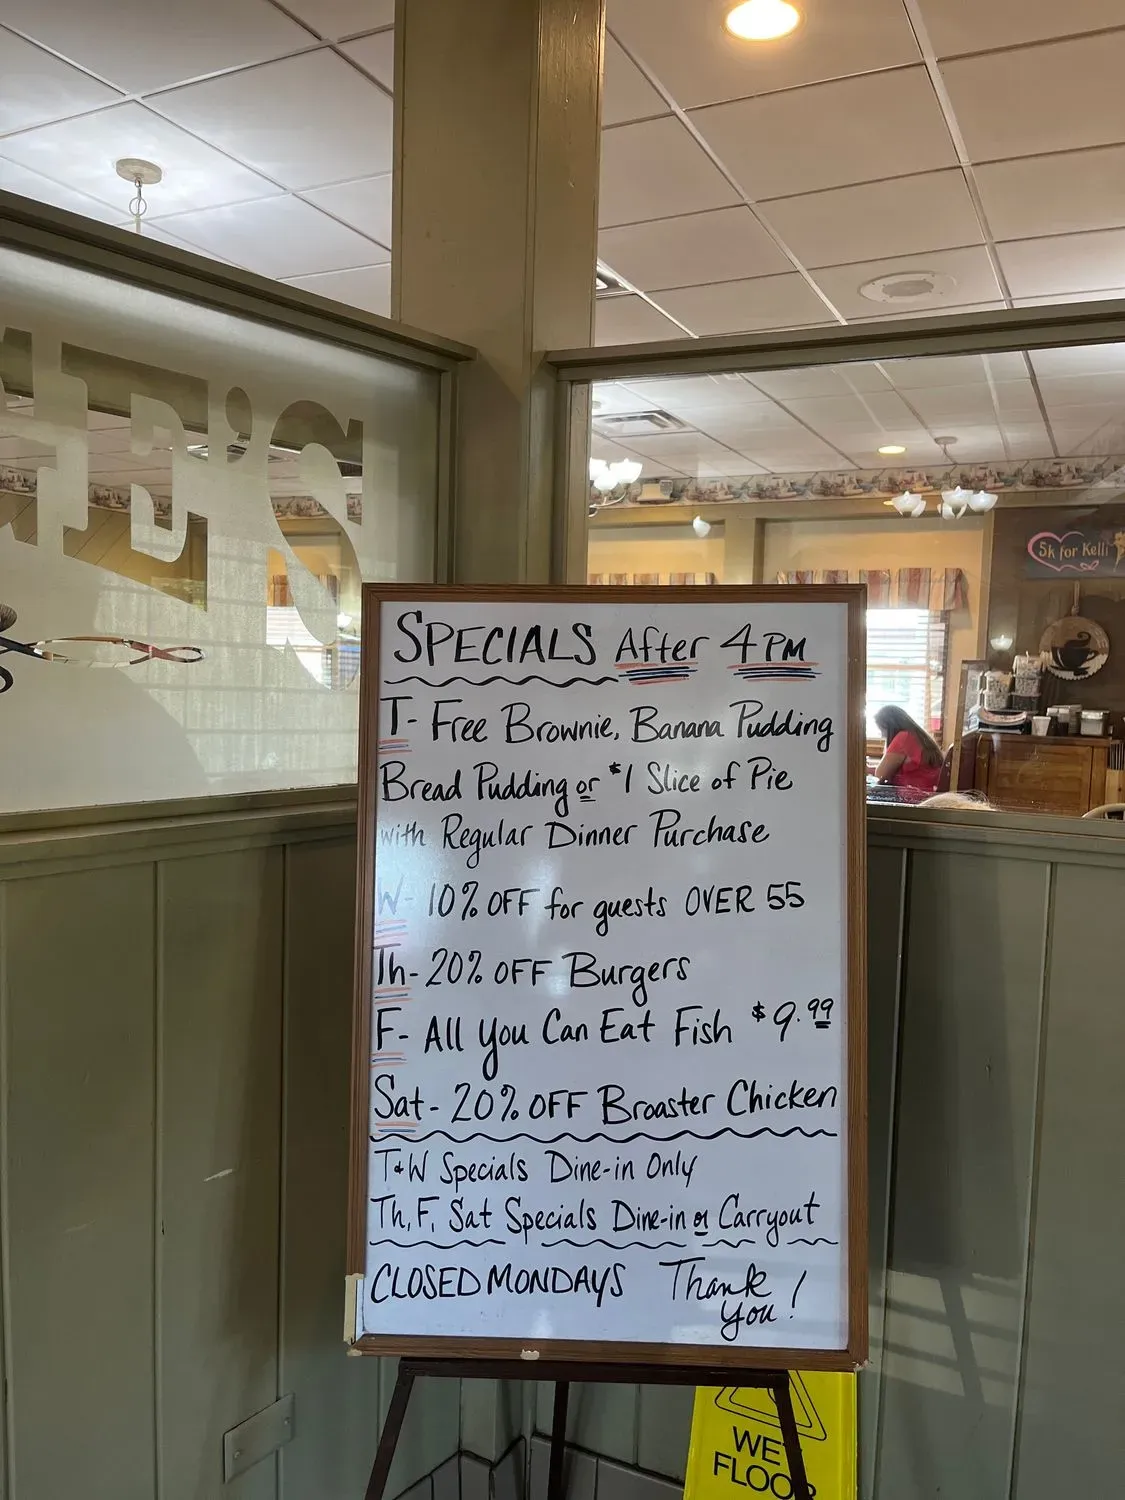 E'S
5k for Kelli
SPECIALS After 4 PM
T- Free Brownie, Banana Pudding
Bread Pudding or $1 Slice of Pie
with Regular Dinner Purchase
W- 10% OFF for guests OVER 55
Th- 20% OFF Burgers
F- All You Can Eat Fish $9.99
Sat- 20% OFF Broaster Chicken
T&W Specials Dine-in Only
Th, F, Sat Specials Dine-in or Carryout
CLOSED MONDAYS Thank
You!
WET
FLOOR